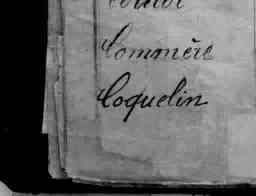 Commère
Coquelin